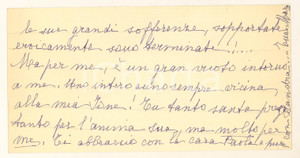 le sue grandi sofferenze, sopportate
eroicamente sono terminate!!...
Ma per me, è un gran vuoto intorno
a me. Un intero anno sempre vicina
alla mia Ione! Tu tanto santa prega
tanto per l'anima sua, ma molto per
me. Ti abbraccio con la cara
con Sandra